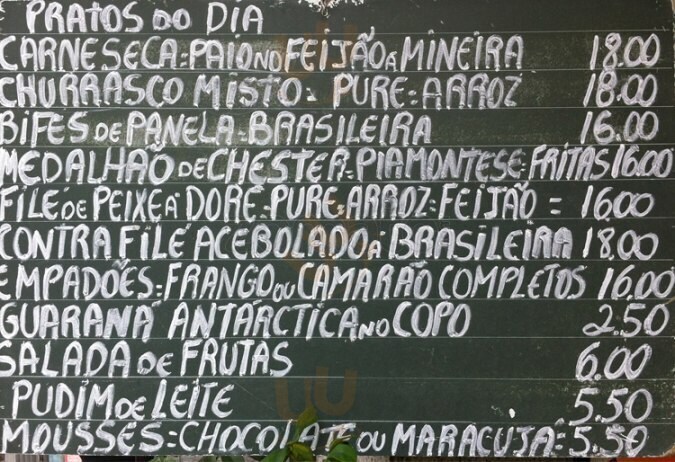 PRATOS DO DIA
CARNE SECA=PAIO NO FEIJÃO A MINEIRA 18.00
CHURRASCO MISTO= PURE=ARROZ 18.00
BIFES DE PANELA=BRASILEIRA 16.00
MEDALHÃO DE CHESTER=PIAMONTESE=FRITAS 16.00
FILÉ DE PEIXE A DORÊ=PURE=ARROZ=FEIJÃO = 16.00
CONTRA FILÉ ACEBOLADO Á BRASILEIRA 18.00
EMPADÕES=FRANGO OU CAMARÃO COMPLETOS 16.00
GUARANA ANTARCTICA NO COPO 2.50
SALADA DE FRUTAS 6.00
PUDIM DE LEITE 5.50
MOUSSES=CHOCOLATE OU MARACUJÁ=5.50